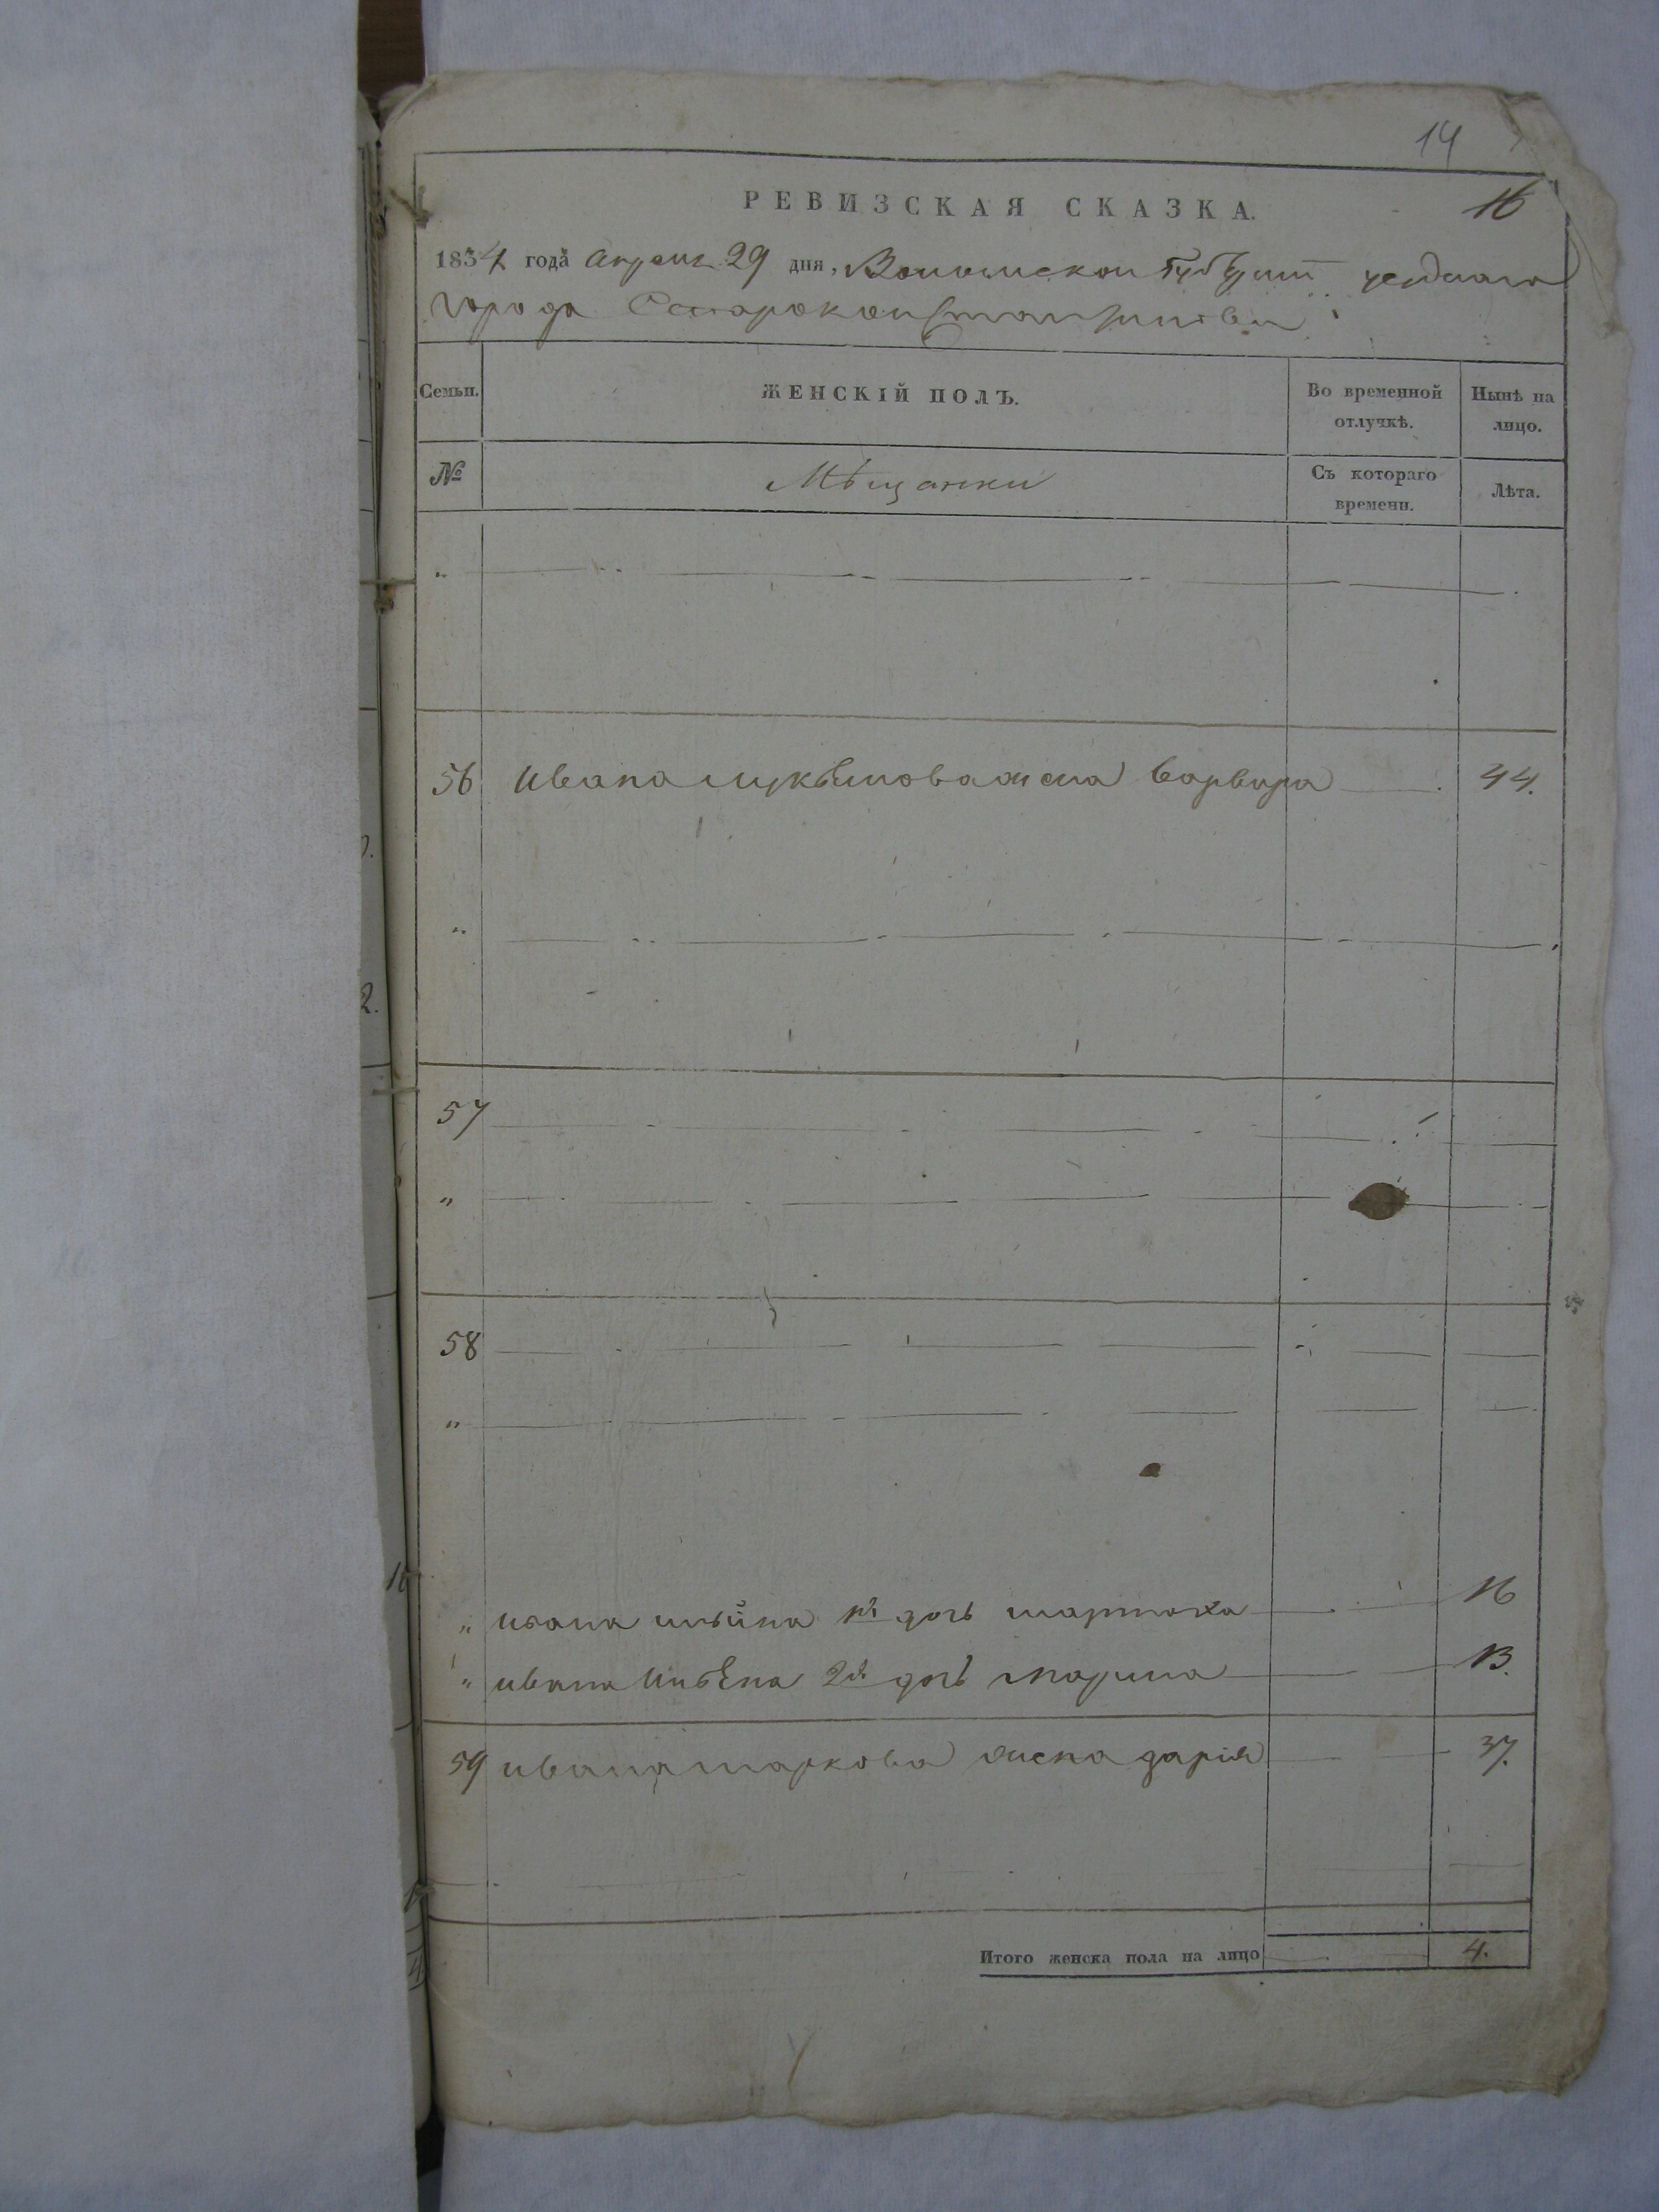 14
16
РЕВИЗСКАЯ СКАЗКА.
1834 года апреля 29 дня, Волынской Губерніи уезднаго
города Староконстантинова
Семьи. ЖЕНСКІЙ ПОЛЪ. Во временной отлучкѣ. Нынѣ на лицо.
№ Мѣщанки Съ котораго времени. Лѣта.
56 Ивана жена варвара 44.
57
58
" ивана 1я дочь 16
" ивана 2я дочь марина 13.
59 ивана маркова жена дарія 37.
Итого женска пола на лицо 4.